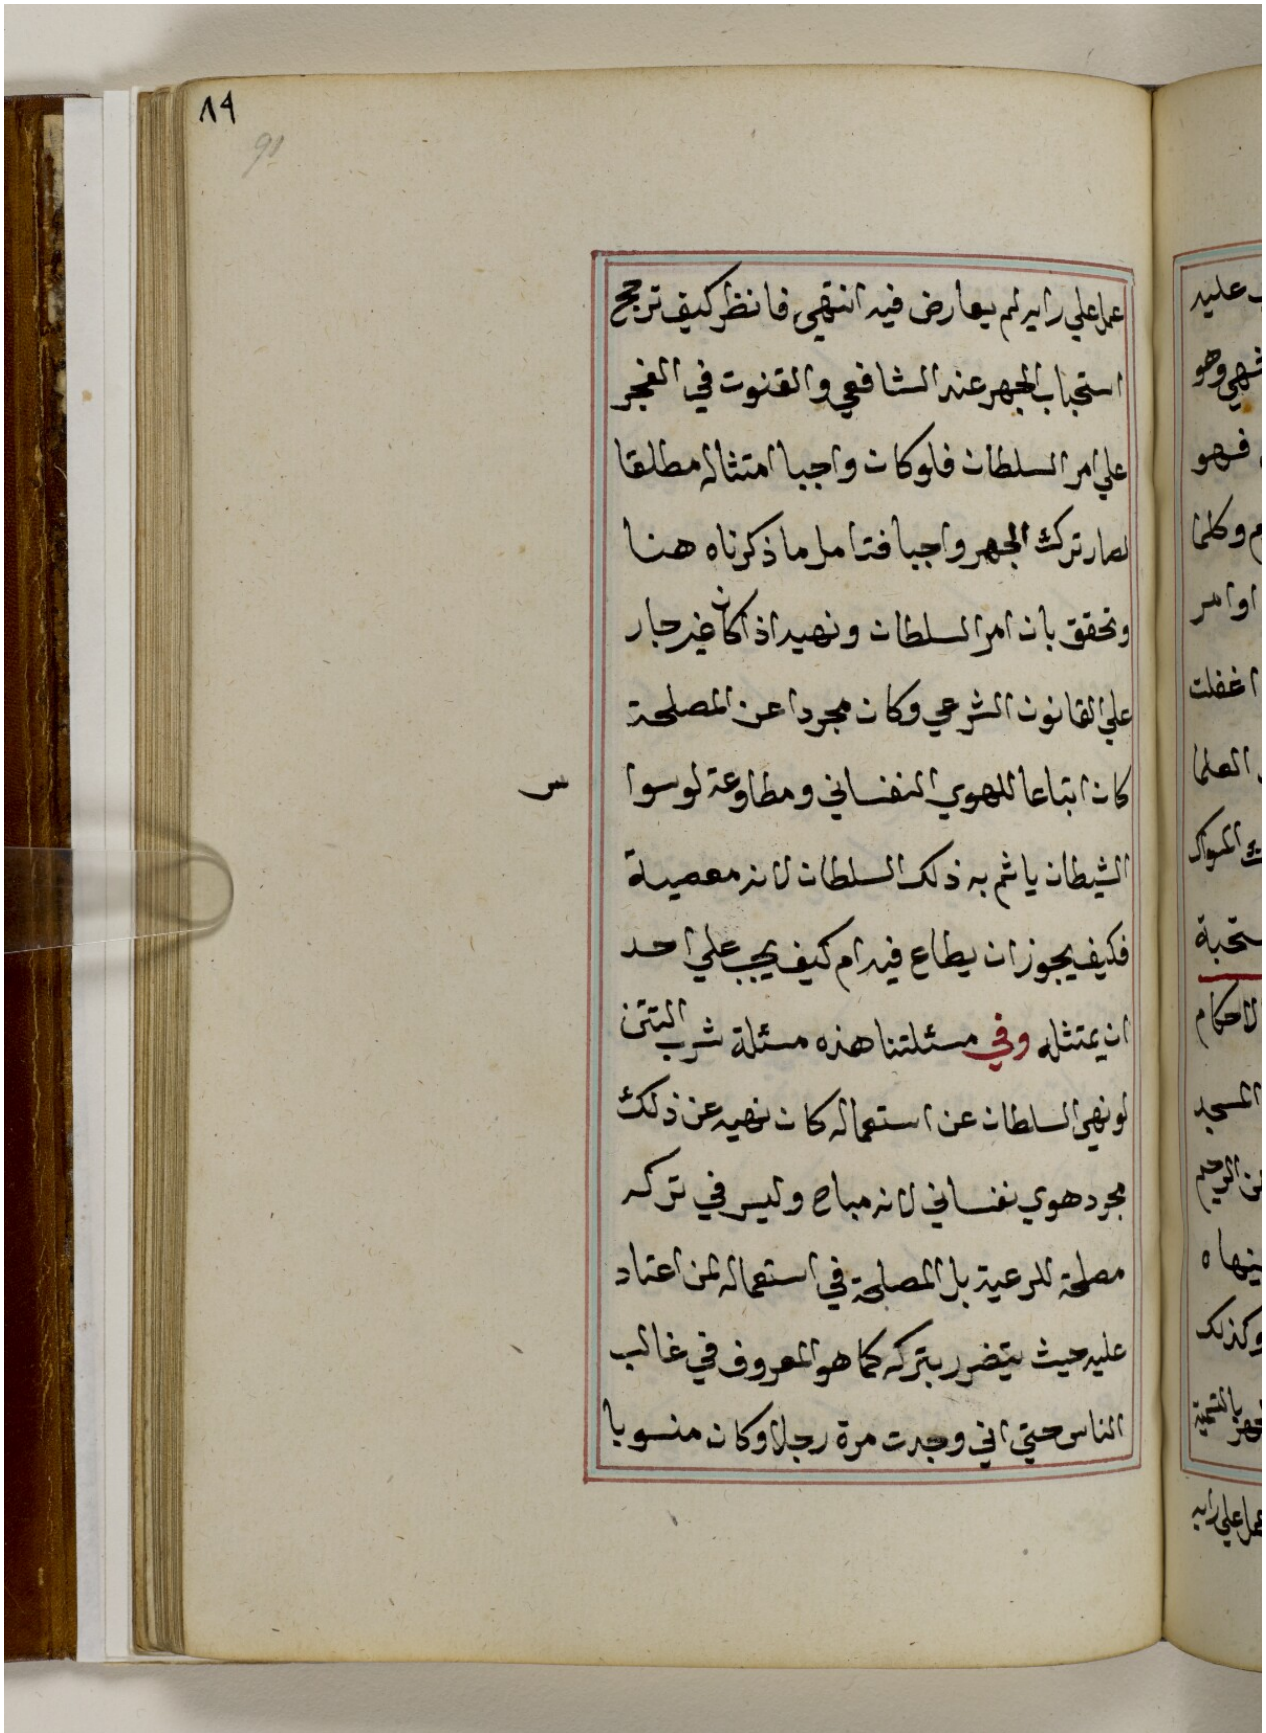 ٨٩
91
عمل علي رايه لم يعارض فيه انتهي فانظر كيف ترجح
استحباب الجهر عند الشافعي والقنوت في الفجر
علي امر السلطان فلو كان واجبا امتثاله مطلقا
لصار ترك الجهر واجبا فتامل ما ذكرناه هنا
وتحقق بان امر السلطان ونهيه اذا كان غير جار
علي القانون الشرعي وكان مجردا عن المصلحة
كان اتباعا للهوي النفساني ومطاوعة لوسوا
س
الشيطان ياثم به ذلك السلطان لانه معصية
فكيف يجوز ان يطاع فيه ام كيف يجب علي احد
ان يمتثله وفي مسئلتنا هذه مسئلة شرب التتن
لو نهي السلطان عن استعماله كان نهيه عن ذلك
مجرد هوي نفساني لانه مباح وليس في تركه
مصلحة للرعية بل المصلحة في استعماله لمن اعتاد
عليه حيث يتضرر بتركه كما هو المعروف في غالب
الناس حتي اني وجدت مرة رجلا وكان منسوبا
عليه
وهو
فهو
وكلما
اوامر
اغفلت
العلما
ستحبة
الاحكام
المسجد
الرحيم
وكذلك
بالتسمية
عمل علي رايه